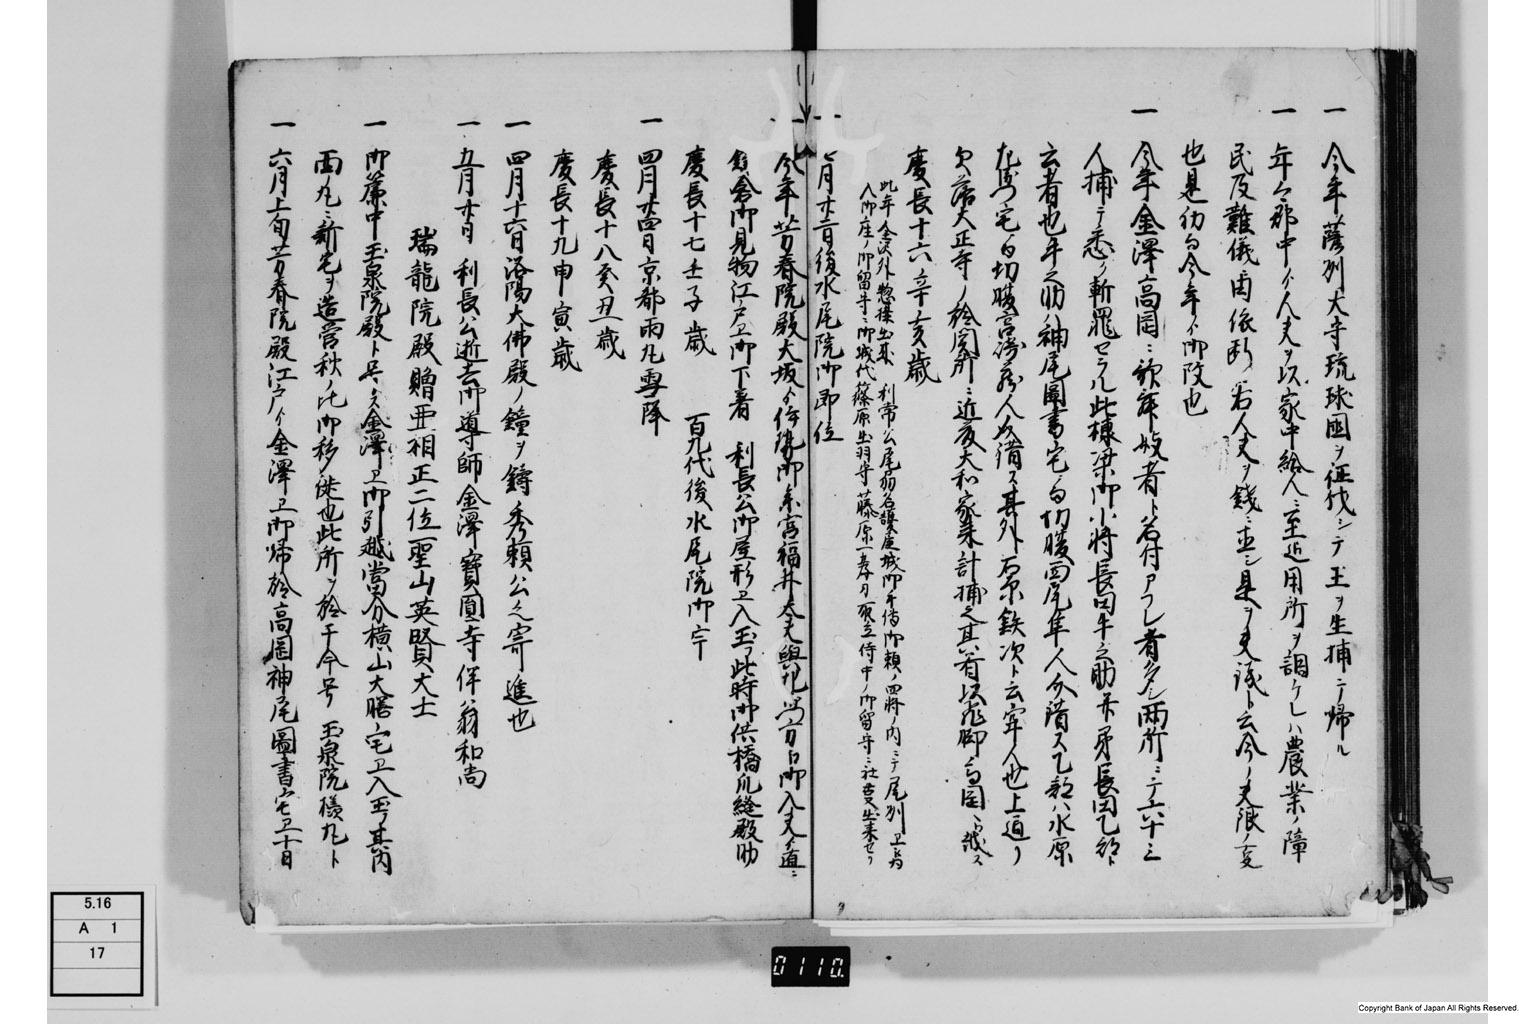 一 今年薩刕大守琉球国ヲ征伐シテ王ヲ生捕ニテ帰ル
一 年々郡中ゟ人夫ヲ以家中給人ニ至近用所ヲ調ケレハ農業ノ障
民及難儀由依断 人夫ヲ銭ニ直シ是ヲ夫銀ト云今ノ夫銀ノ
也是仍而今年ゟ御改也
一 今年金澤高岡ニ 者ト名付アフレ者多シ両所ニテ六十三
人捕テ悉ク斬罪セラル此棟梁御小将長田牛之助并弟長田乙部ト
云者也牛之助ハ神尾圖書宅ニ而切腹 隼人 乙部ハ水原
左衛門宅ニ而切腹 人 其外石原鉄次ト云牢人也上道ノ
欠落大正寺ノ於関所ニ近友大和家来計捕之其首以飛脚高岡ヘ越ス
此年金沢外惣構出来 利常公尾易名護屋城御手傳御頼ノ四将ノ内ニテ尾刕
入御座ノ御留守ニ御城代篠原出羽守 藤原一孝 侍中ノ御留守ニ 出来セリ
慶長十六辛亥歳
七月廿二日後水尾院御即位
一 今年芳春院殿大坂ゟ伊勢御参宮福井 御入夫ゟ直ニ
鎌倉御見物江戸ヱ御下着 利長公御屋形ヱ入玉フ此時御供橋爪縫殿助
慶長十七壬子歳 百九代後水尾院御宇
一 四月廿四日京都雨九雪降
慶長十八癸丑歳
慶長十九甲寅歳
一 四月十六日洛陽大佛殿ノ鐘ヲ鋳秀頼公之寄進也
一 五月廿日 利長公逝去御導師金澤寳圓寺伴翁和尚
瑞龍院殿贈亜相正二位聖山英賢大士
一 御簾中玉泉院殿ト号シ金澤ヱ御引越當分横山大膳宅ヱ入玉フ其内
西ノ丸ニ新宅ヲ造営秋ノ比御移徙也此所ヲ於于今号 玉泉院様丸ト
一 六月上旬芳春院殿江戸ゟ金澤ヱ御帰於高岡神尾圖書宅ヱ十日
5.16
A 1
17
0110.
Copyright Bank of Japan All Rights Reserved.